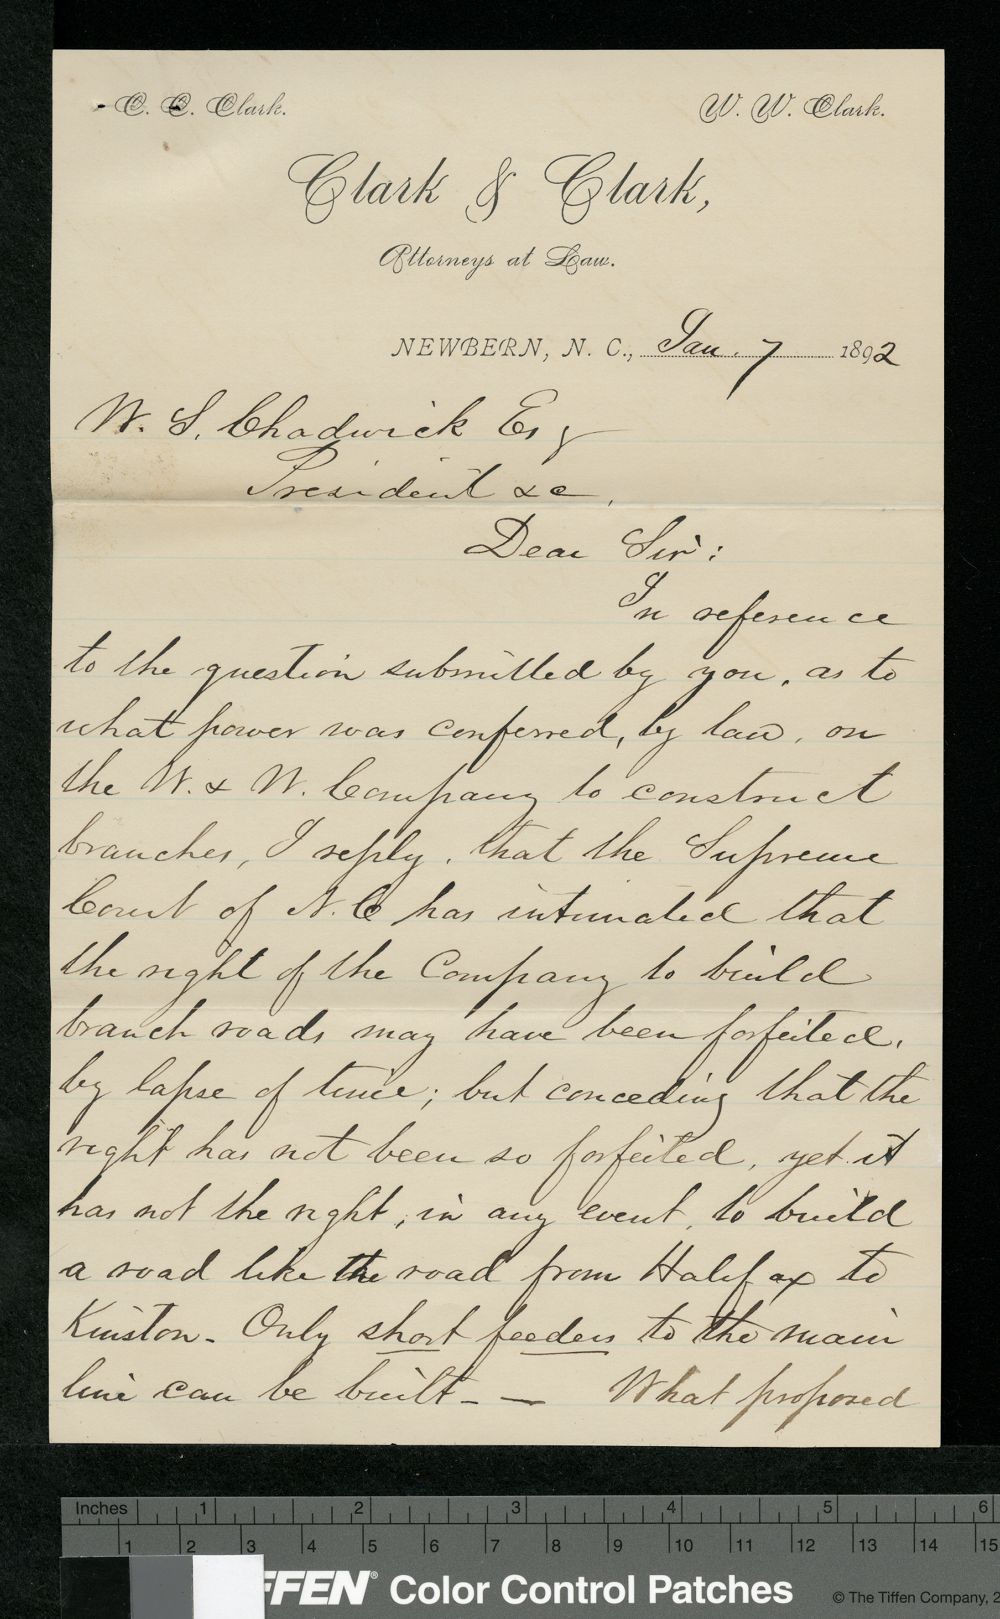 C. C. Clark.
W. W. Clark.
Clark & Clark,
Attorneys at Law.
NEWBERN, N. C., Jan. 7 1892
W. S. Chadwick Esq
President &c.
Dear Sir:
In reference
to the question submitted by you, as to
what power was conferred, by law, on
the W. & W. Company to construct
branches, I reply, that the Supreme
Court of N.C has intimated that
the right of the Company to build
branch roads may have been forfeited,
by lapse of time; but conceding that the
right has not been so forfeited, yet it
has not the right, in any event, to build
a road like the road from Halifax to
Kinston - Only short feeders to the main
line can be built - — What proposed
Inches 1 2 3 4 5 6
1 2 3 4 5 6 7 8 9 10 11 12 13 14 15
FFEN® Color Control Patches
© The Tiffen Company, 2